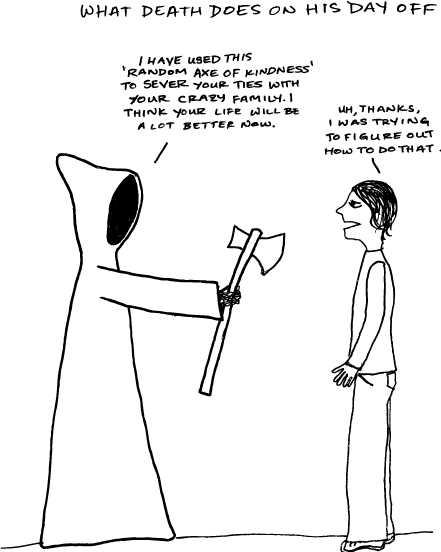 WHAT DEATH DOES ON HIS DAY OFF
I HAVE USED THIS
'RANDOM AXE OF KINDNESS'
TO SEVER YOUR TIES WITH
YOUR CRAZY FAMILY. I
THINK YOUR LIFE WILL BE
A LOT BETTER NOW.
UH, THANKS,
I WAS TRYING
TO FIGURE OUT
HOW TO DO THAT.